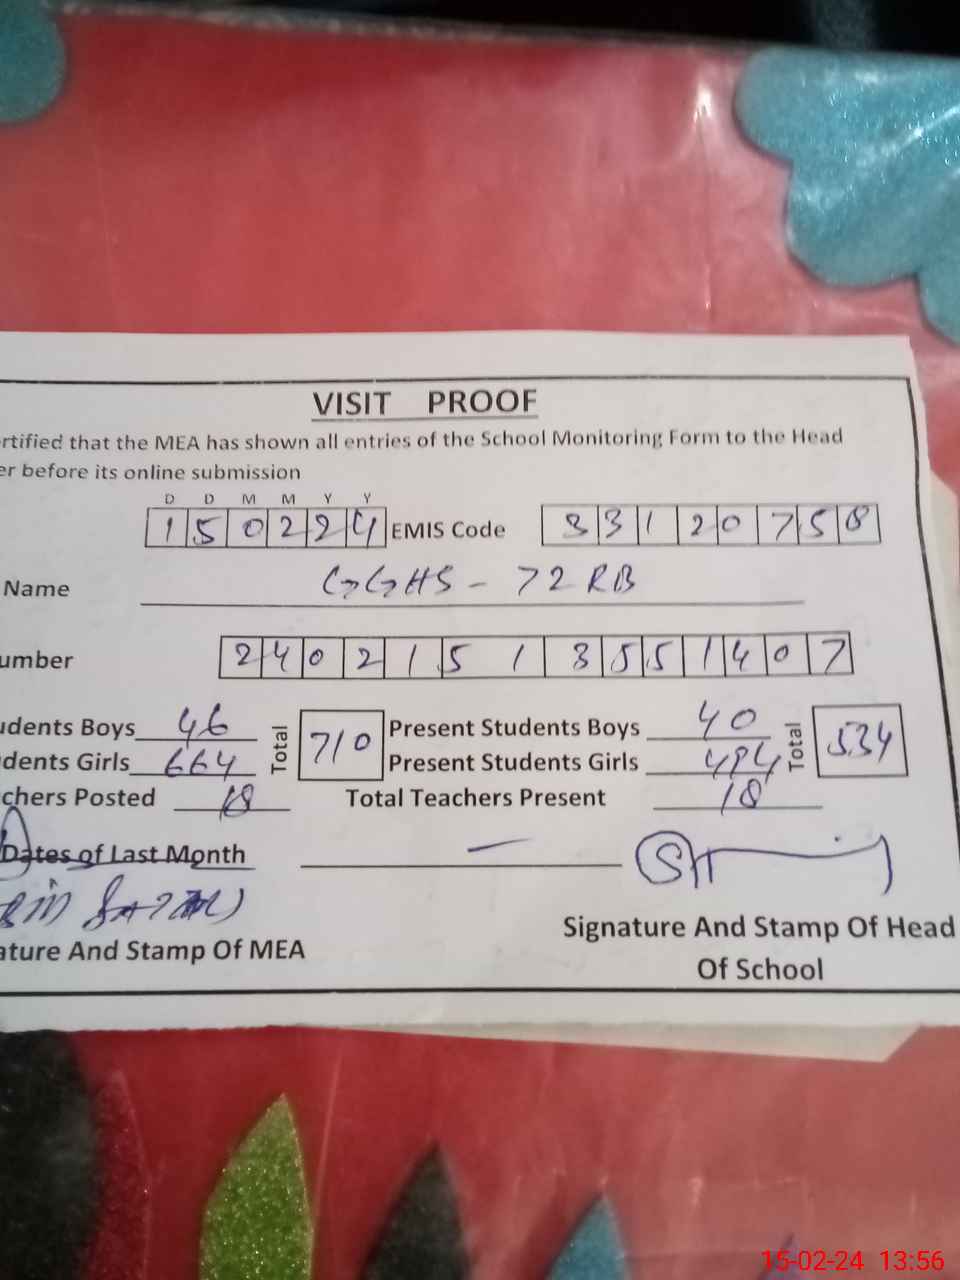 VISIT PROOF
rtified that the MEA has shown all entries of the School Monitoring Form to the Head
er before its online submission
D D M M Y Y
1 5 0 2 2 4 EMIS Code 3 3 1 2 0 7 5 8
Name GGHS - 72 RB
umber 2 4 0 2 1 5 1 3 5 5 1 4 0 7
udents Boys 46 Total 710 Present Students Boys 40 Total 534
dents Girls 664 Present Students Girls 494
chers Posted 18 Total Teachers Present 18
Dates of Last Month —
ature And Stamp Of MEA
Signature And Stamp Of Head
Of School
15-02-24 13:56